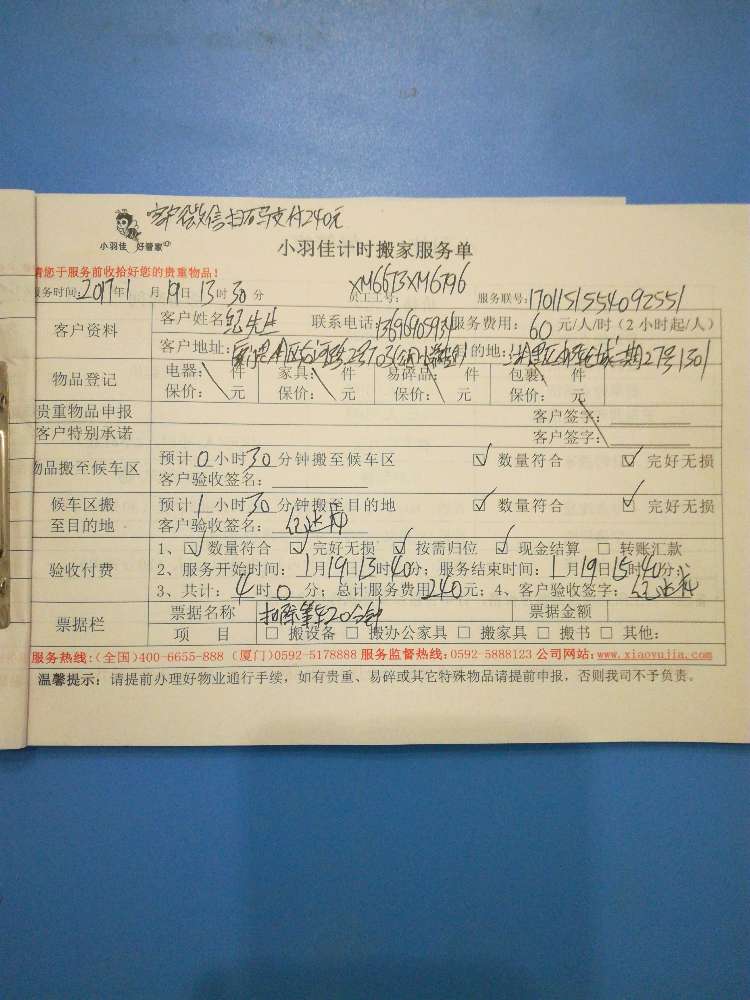 客户微信扫码支付240元
小羽佳 好管家
小羽佳计时搬家服务单
请您于服务前收拾好您的贵重物品!
XM6673XM6796
服务时间:2017年1月19日13时30分 员工工号: 服务联号:1701151554092551
客户资料 客户姓名:纪先生 联系电话:13696905934 服务费用:60元/人/时(2小时起/人)
客户地址: 目的地: 27号1301
物品登记 电器: 件 家具: 件 易碎品: 件 包裹: 件
保价: 元 保价: 元 保价: 元 保价: 元
贵重物品申报 客户签字:
客户特别承诺 客户签字:
物品搬至候车区 预计0小时30分钟搬至候车区 ☑ 数量符合 ☑ 完好无损
客户验收签名:
候车区搬至目的地 预计1小时30分钟搬至目的地 ☑ 数量符合 ☑ 完好无损
客户验收签名:
验收付费 1、☑ 数量符合 ☑ 完好无损 ☑ 按需归位 ☑ 现金结算 □ 转账汇款
2、服务开始时间:1月19日13时40分;服务结束时间:1月19日15时40分;
3、共计:4时0分;总计服务费用240元;4、客户验收签字:
票据栏 票据名称 扣除等车20分钟 票据金额
项 目 □ 搬设备 □ 搬办公家具 □ 搬家具 □ 搬书 □ 其他:
服务热线:(全国)400-6655-888 (厦门)0592-5178888 服务监督热线:0592-5888123 公司网站:www.xiaoyujia.com
温馨提示:请提前办理好物业通行手续,如有贵重、易碎或其它特殊物品请提前申报,否则我司不予负责。